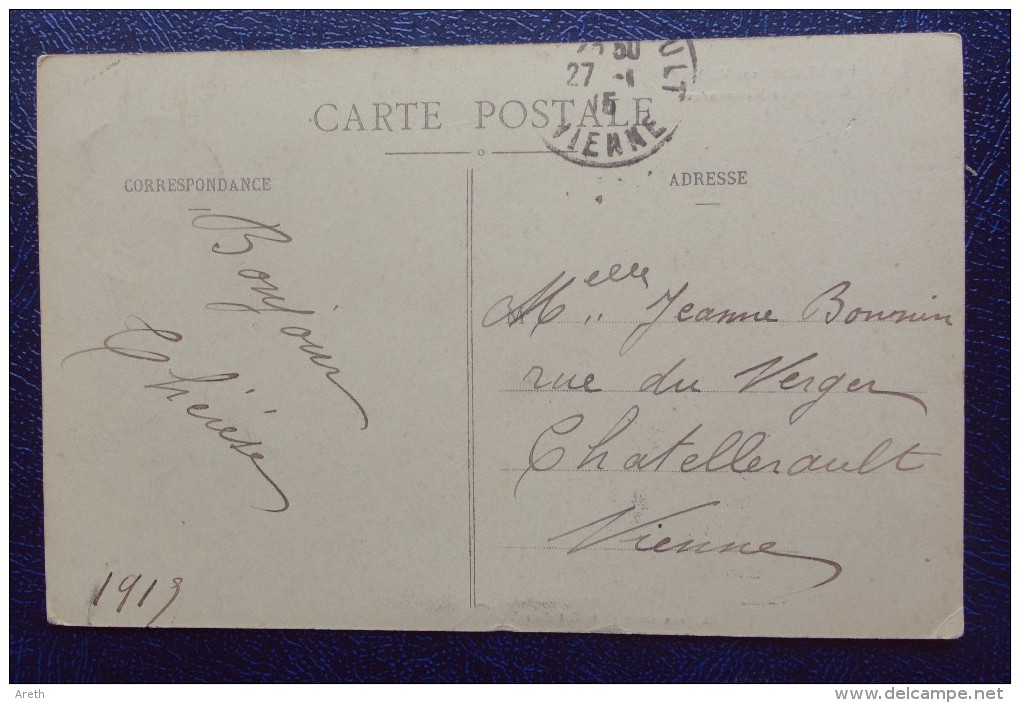 CARTE POSTALE
27 -1
15
VIENNE
CORRESPONDANCE
ADRESSE
Bonjour
Thérèse
1913
Melle Jeanne Bounin
rue du Verger
Chatellerault
Vienne
Areth
www.delcampe.net